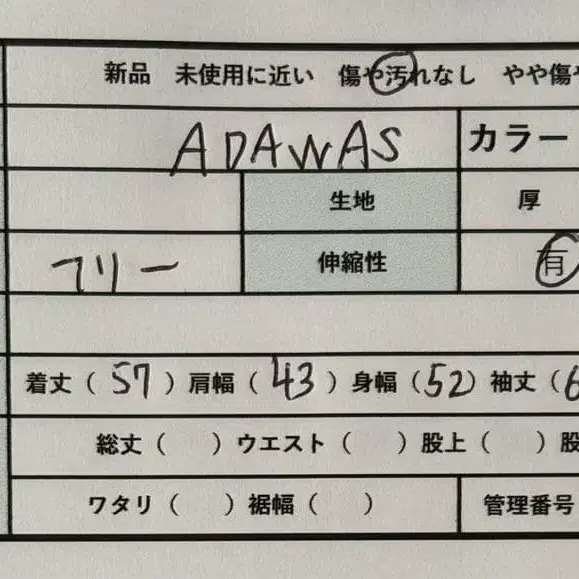 新品 未使用に近い 傷や汚れなし やや傷や
ADAWAS カラー
生地 厚
フリー 伸縮性 有
着丈（57）肩幅（43）身幅（52）袖丈（6
総丈（ ）ウエスト（ ）股上（ ）股
ワタリ（ ）裾幅（ ） 管理番号